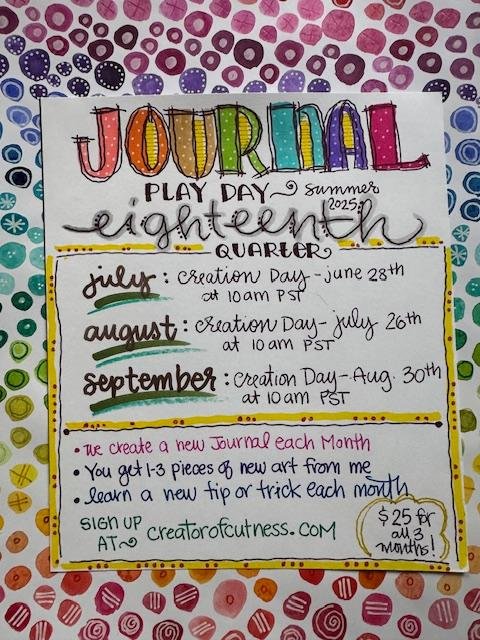 JOURNAL
PLAY DAY summer
2025
eighteenth
QUARTER
july: Creation Day - june 28th
at 10am PST
august: Creation Day - july 26th
at 10am PST
september: Creation Day - Aug. 30th
at 10am PST
• We create a new Journal each Month
• You get 1-3 pieces of new art from me
• learn a new tip or trick each month
SIGN UP
AT creatorofcutness.com
$25 for
all 3
months!